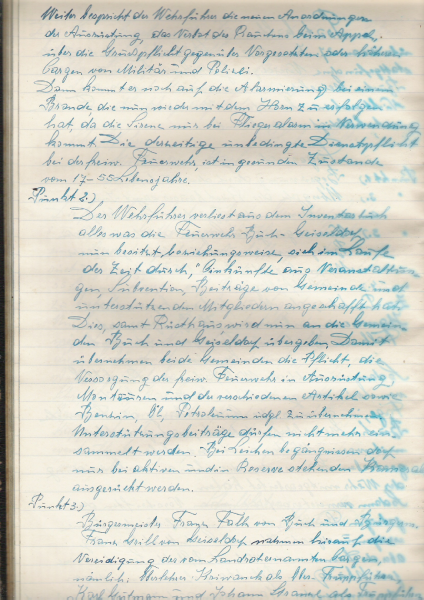 Weiter bespricht der Wehrführer die neuen Anordnungen
der Ausrüstung, das Verbot des Rauchens beim Appel,
über die Grusspflicht gegenüber Vorgesetzten oder höheren
Dann kommt er noch auf die Alarmierung bei einem
Brande, die nun wieder mit dem Horn zu erfolgen
hat, da die Sirene nur bei Fliegeralarm in Verwendung
kommt. Die derzeitige unbedingte Dienstpflicht
bei der freiw. Feuerwehr, ist in gesunden Zustande
vom 17-55 Lebensjahre.
Punkt 2.)
Der Wehrführer verliest aus dem Inventarbuch
alles was die Feuerwehr Buch-Geiseldorf
nun besitzt, beziehungsweise, sich im Laufe
der Zeit durch, Einkünfte aus Veranstaltun-
gen, Subvention, Beiträge von Gemeinde und
unterstützenden Mitgliedern angeschafft hat.
Dies, samt Rüsthaus wird nun an die Gemein-
den Buch und Geiseldorf übergeben. Damit
übernehmen beide Gemeinden die Pflicht, die
Versorgung der freiw. Feuerwehr in Ausrüstung
Monturen und der verschiedenen Artikel sowie
Benzin, Öl, Petroleum udgl. zu übernehmen.
Unterstützungsbeiträge dürfen nicht mehr ein-
sammelt werden. Bei Leichenbegängnissen darf
nur bei aktiven und in Reserve stehenden
ausgerückt werden.
Punkt 3.)
Bürgermeister Franz Falk von Buch und
Franz Grill von Geiseldorf nahmen hierauf die
Vereidigung der vom Landratsamte
nämlich: als
und Johann als